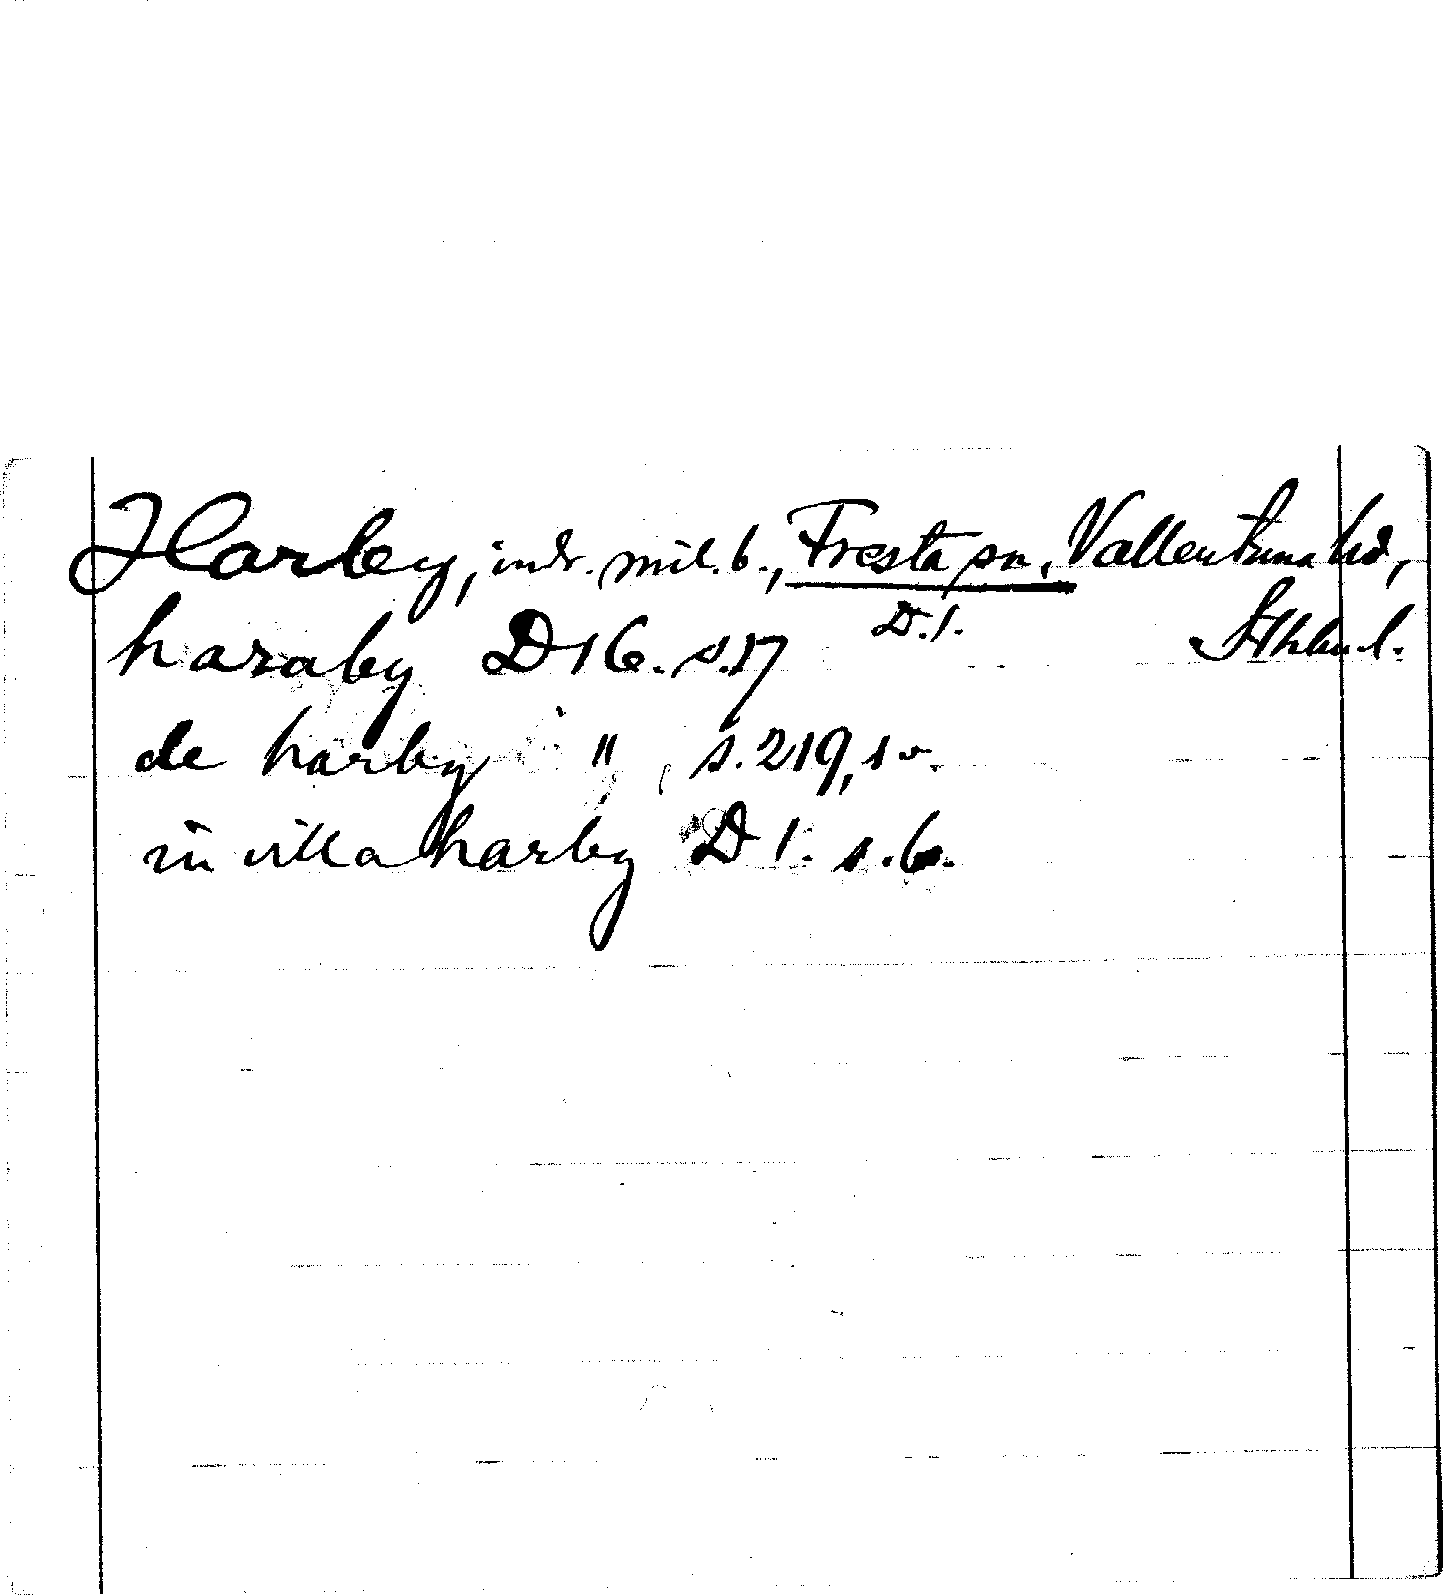 Harby, indr. mil. b., Fresta sn, Vallentuna hd,
D. 1. Sthlms l.
haraby D 16. s. 17
de harby " s. 219,
in villa harby D 1. s. 6.